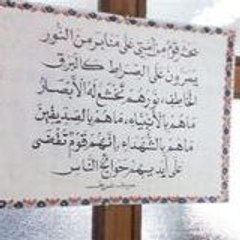 يحشر قوم من أمتي على منابر من النور
يمرون على الصراط كالبرق
الخاطف، نورهم تخشع له الأبصار
ما هم بالأنبياء، ما هم بالصديقين
ما هم بالشهداء إنهم قوم تقضى
على أيديهم حوائج الناس
حديث شريف